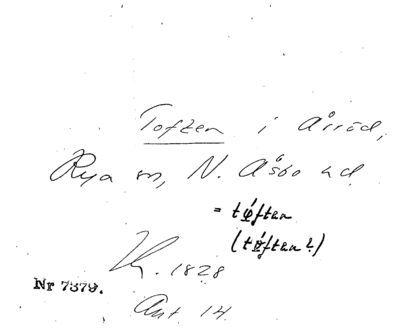 Toften i Årröd,
Rya sn, N. Åsbo hd
= tǿften
(tǿften?)
1828
Nr 7379.
Ant 14